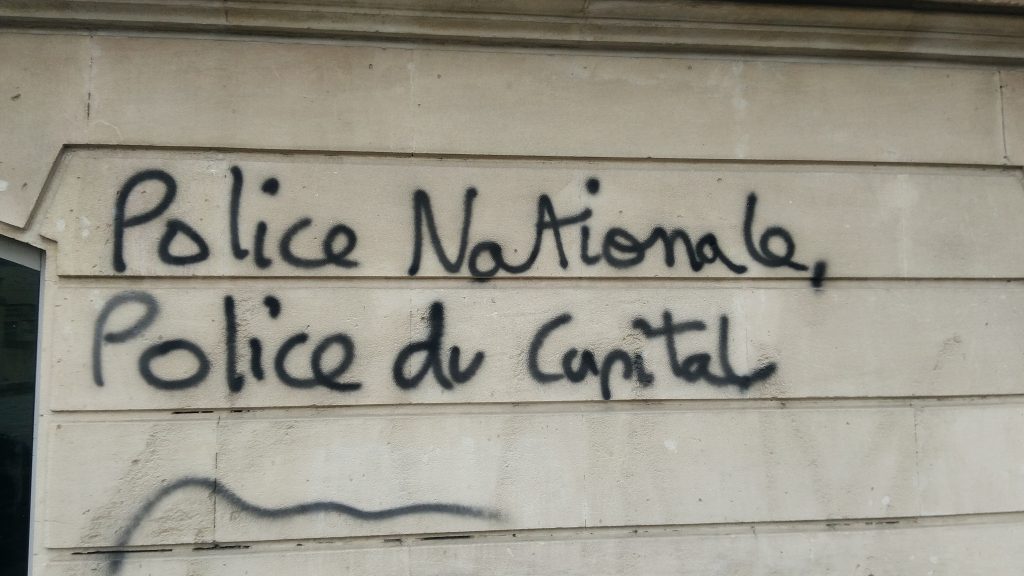 Police Nationale,
Police du Capital